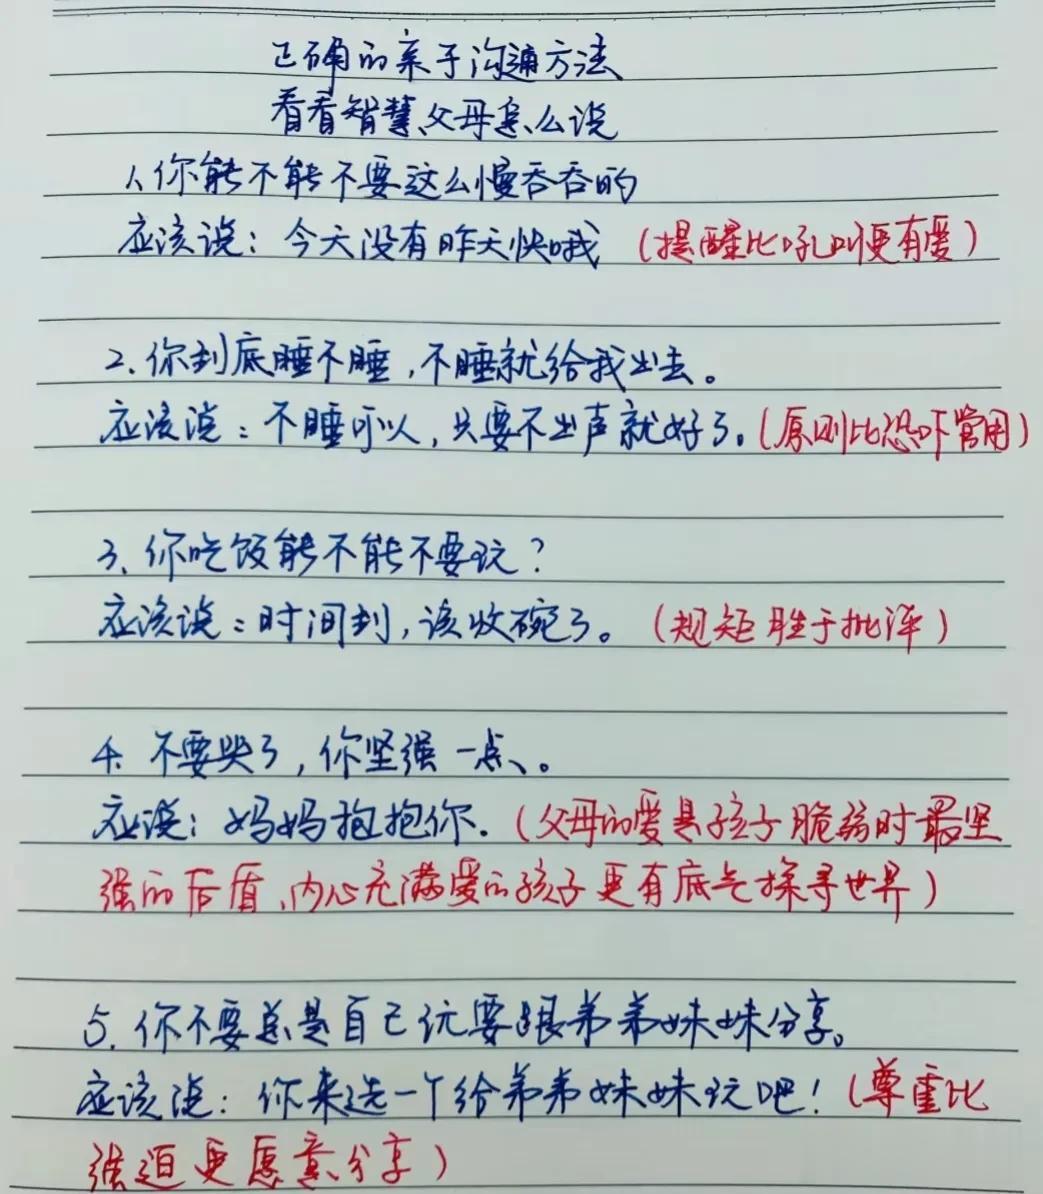 正确的亲子沟通方法
看看智慧父母怎么说
1、你能不能不要这么慢吞吞的
应该说：今天没有昨天快哦（提醒比吼叫更有爱）
2.你到底睡不睡，不睡就给我出去。
应该说：不睡可以，只要不出声就好了。（原则比恐吓管用）
3、你吃饭能不能不要玩？
应该说：时间到，该收碗了。（规矩胜于批评）
4. 不要哭了，你坚强一点、。
应说：妈妈抱抱你.（父母的爱是孩子脆弱时最坚
强的后盾、内心充满爱的孩子更有底气探寻世界）
5.你不要总是自己玩要跟弟弟妹妹分享。
应该说：你来选一个给弟弟妹妹玩吧！（尊重比
强迫更愿意分享）